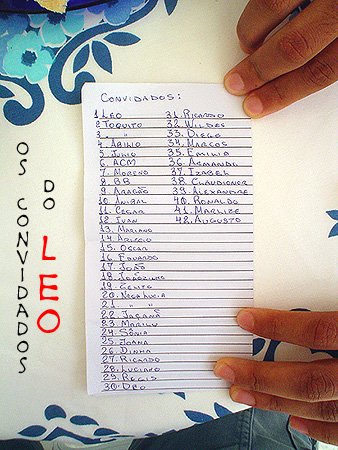 OS CONVIDADOS
DO LEO
CONVIDADOS:
1. LEO
2. TOQUITO
3. " "
4. ABILIO
5. JUNIO
6. ACM
7. MORENO
8. BB
9. ARAGÃO
10. ANIBAL
11. CESAR
12. IVAN
13. MARIANO
14.
15. OSCAR
16. EDUARDO
17. JOÃO
18. JOÃOZINHO
19.
20.
21. " "
22.
23. MARILU
24. SÔNIA
25. JOANA
26. DINHA
27. RICARDO
28. LUCIANO
29. REGIS
30.
31. RICARDO
32. WILDES
33. DIEGO
34. MARCOS
35. EMILIO
36. ARMANDO
37. IZABEL
38. CLAUDIONER
39. ALEXANDRE
40. RONALDO
41. MARLIZE
42. AUGUSTO